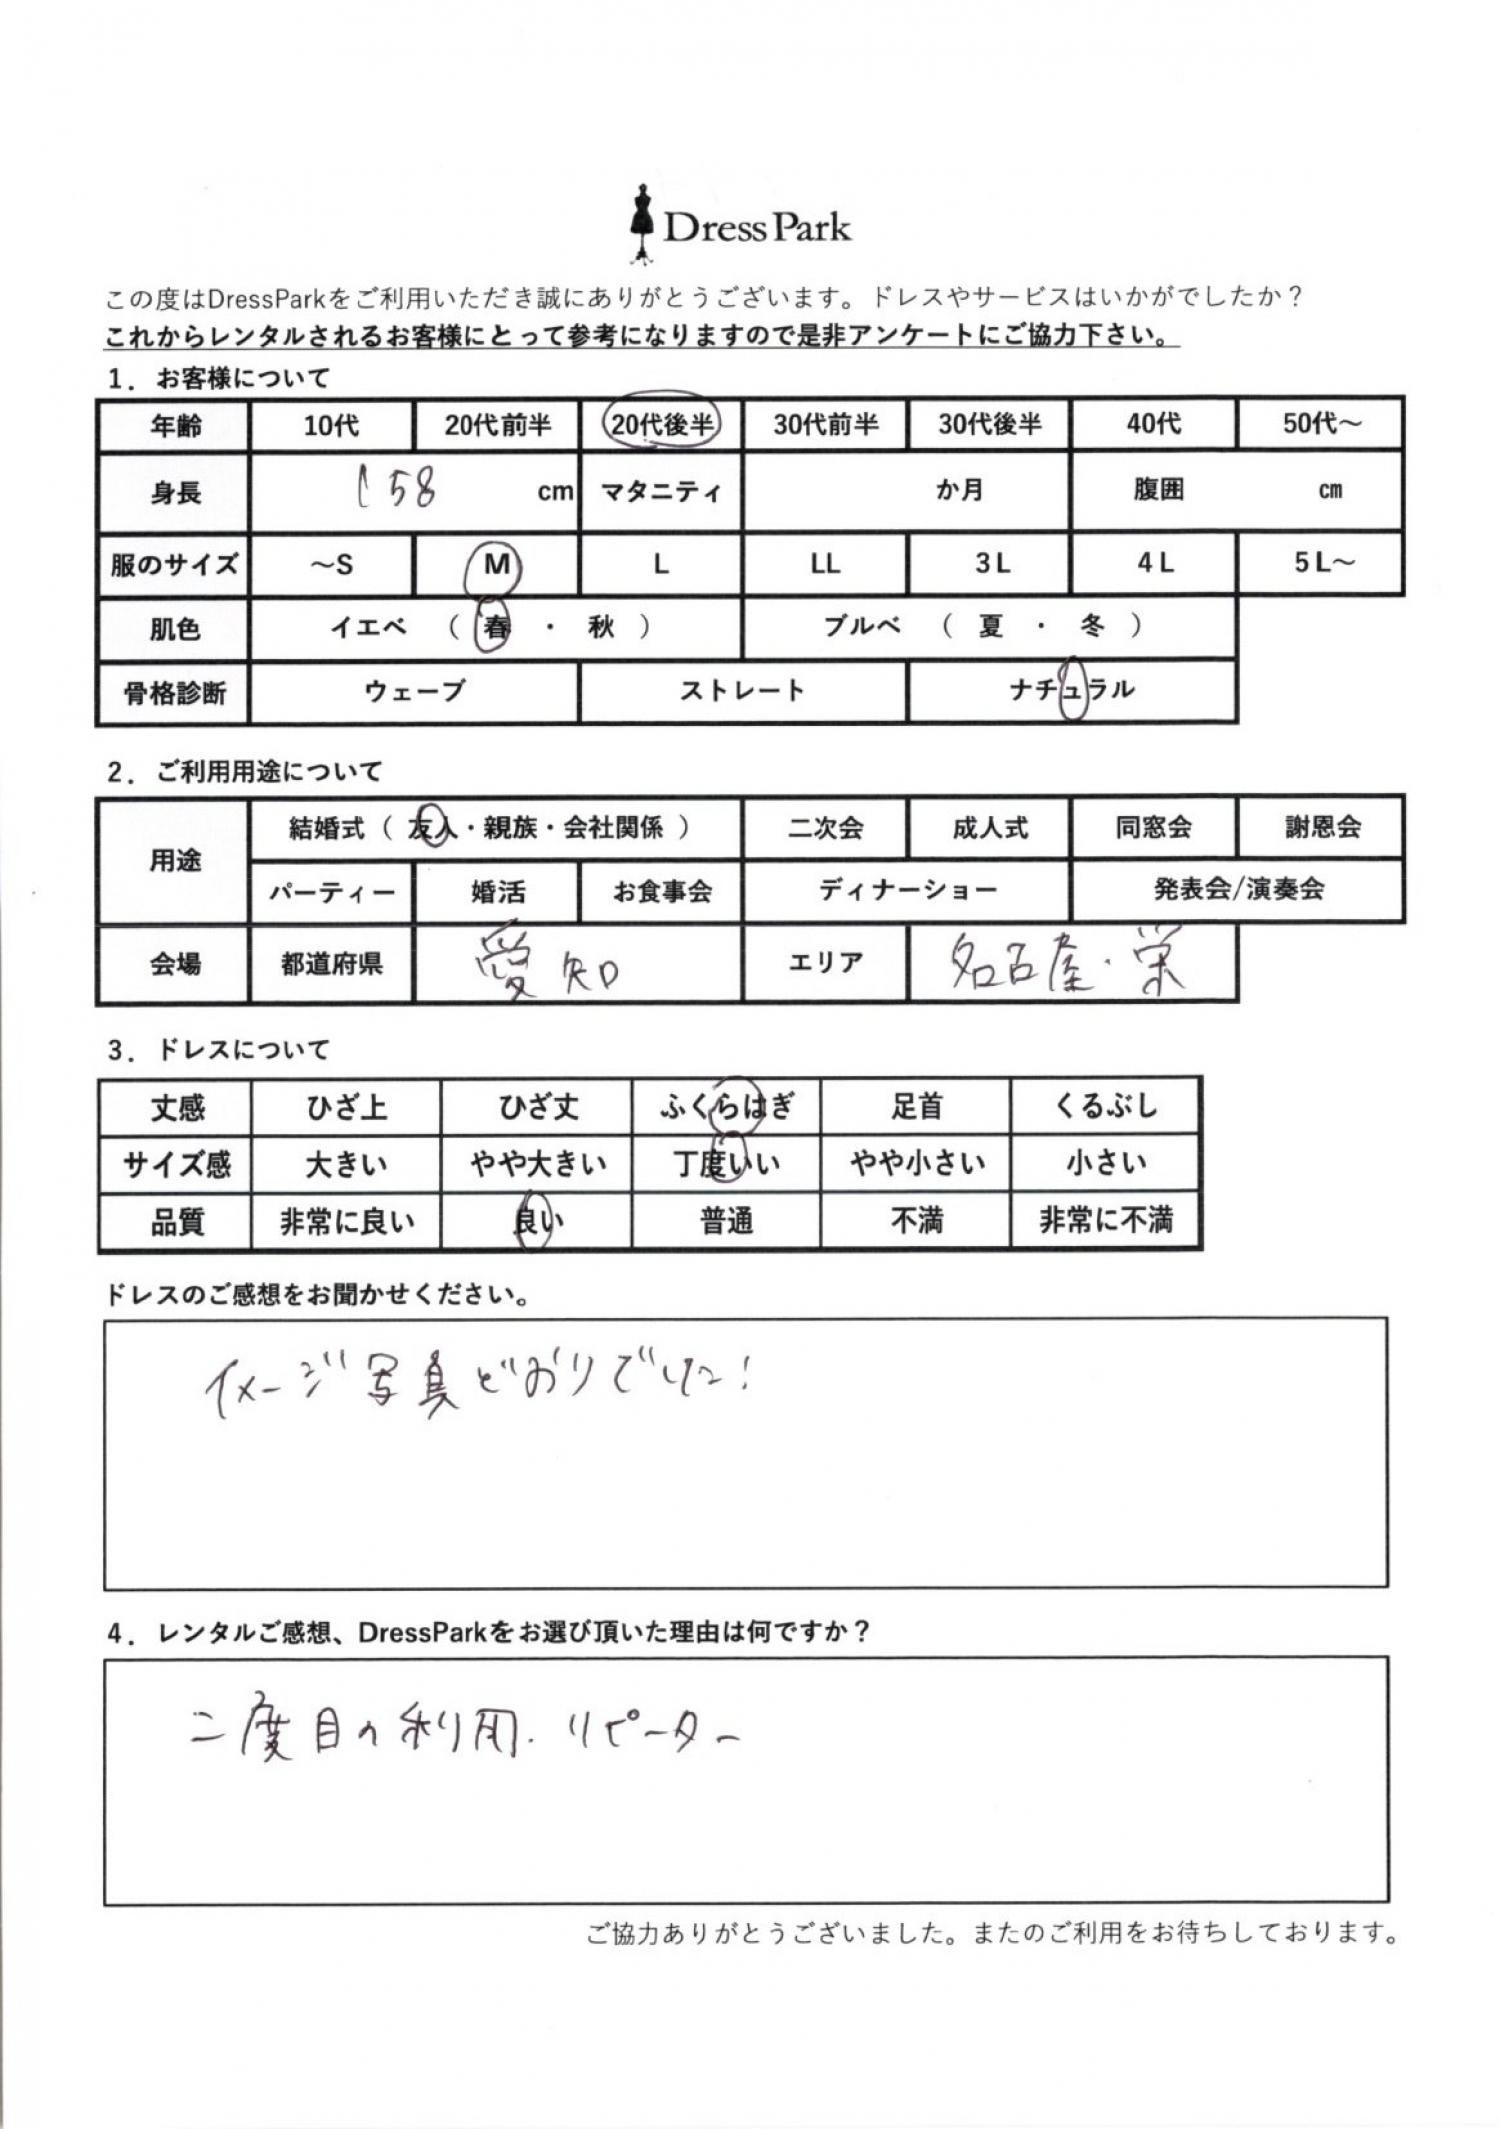 DressPark
この度はDressParkをご利用いただき誠にありがとうございます。ドレスやサービスはいかがでしたか？
これからレンタルされるお客様にとって参考になりますので是非アンケートにご協力下さい。
1. お客様について
年齢 10代 20代前半 20代後半 30代前半 30代後半 40代 50代～
身長 158 cm マタニティ か月 腹囲 ㎝
服のサイズ ～S M L LL 3L 4L 5L～
肌色 イエベ （ 春 ・ 秋 ） ブルベ （ 夏 ・ 冬 ）
骨格診断 ウェーブ ストレート ナチュラル
2. ご利用用途について
用途 結婚式（ 友人・親族・会社関係 ） 二次会 成人式 同窓会 謝恩会
パーティー 婚活 お食事会 ディナーショー 発表会/演奏会
会場 都道府県 愛知 エリア 名古屋・栄
3. ドレスについて
丈感 ひざ上 ひざ丈 ふくらはぎ 足首 くるぶし
サイズ感 大きい やや大きい 丁度いい やや小さい 小さい
品質 非常に良い 良い 普通 不満 非常に不満
ドレスのご感想をお聞かせください。
イメージ写真どおりでした！
4. レンタルご感想、DressParkをお選び頂いた理由は何ですか？
二度目の利用．リピーター
ご協力ありがとうございました。またのご利用をお待ちしております。